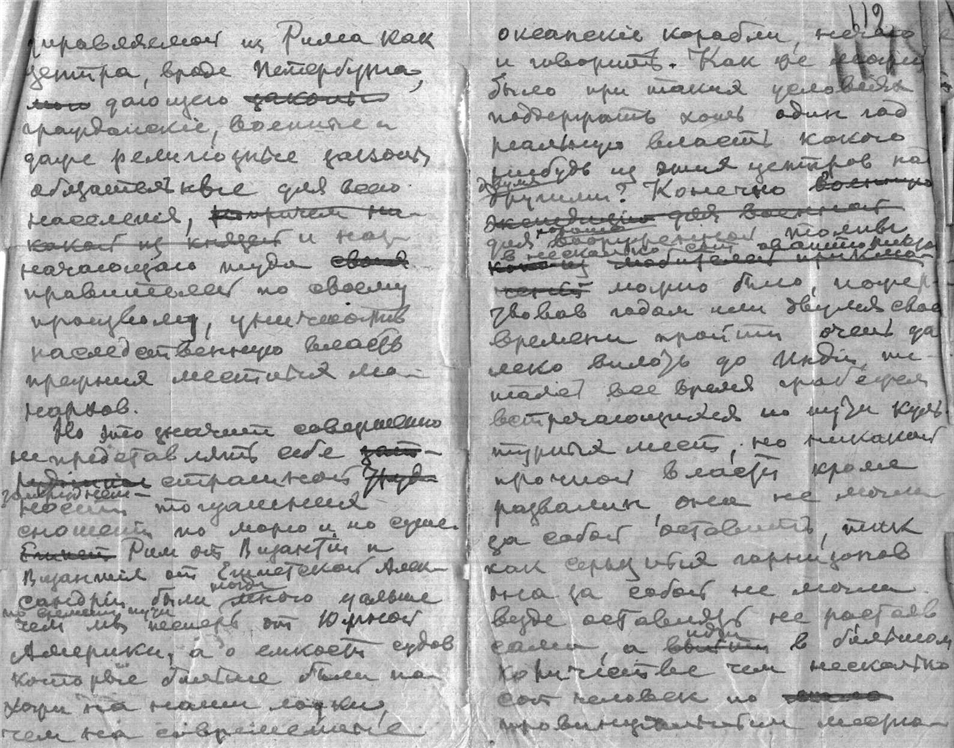 управляемой из Рима как
центра, вроде Петербурга,
дающего законы
гражданскіе, военные и
даже религіозные законы
обязательные для всего
населенія, и наз-
начающаго туда своих
правителей по своему
произволу, уничтожив
наследственную власть
прежних местных мо-
нархов.
Но это значит совершенно
не представлять себе
страшной
затруднен-
ности тогдашних
сношеній по морю и по суше.
Египет Рим от Византіи и
Византія от Египетской Алек-
сандріи были тогда много дальше
по времени пути
чем мы теперь от Южной
Америки, а о емкости судов
которые больше были по-
хожи на наши лодки,
чем на современные
112
океанскіе корабли, нечего
и говорить. Как же можно
было при таких условіях
поддержать хоть один год
реальную власть какого
нибудь из этих центров над
двумя
другими? Конечно военную
экспедицію для военной
для хорошо вооруженной толпы
в несколько сот авантюристов
любителей приклю-
ченій можно было, пожер-
твовав годом или двумя своего
времени пройти очень да-
леко вплоть до Индіи, пи-
таясь все время грабежем
встречающихся по пути куль-
турных мест, но никакой
прочной власти кроме
развалин, она не могла
за собой оставить, так
как серьезных гарнизонов
она за собой не могла
везде оставлять не растаяв
сама, а идти в большом
количестве чем несколько
сот человек по
провинціальным